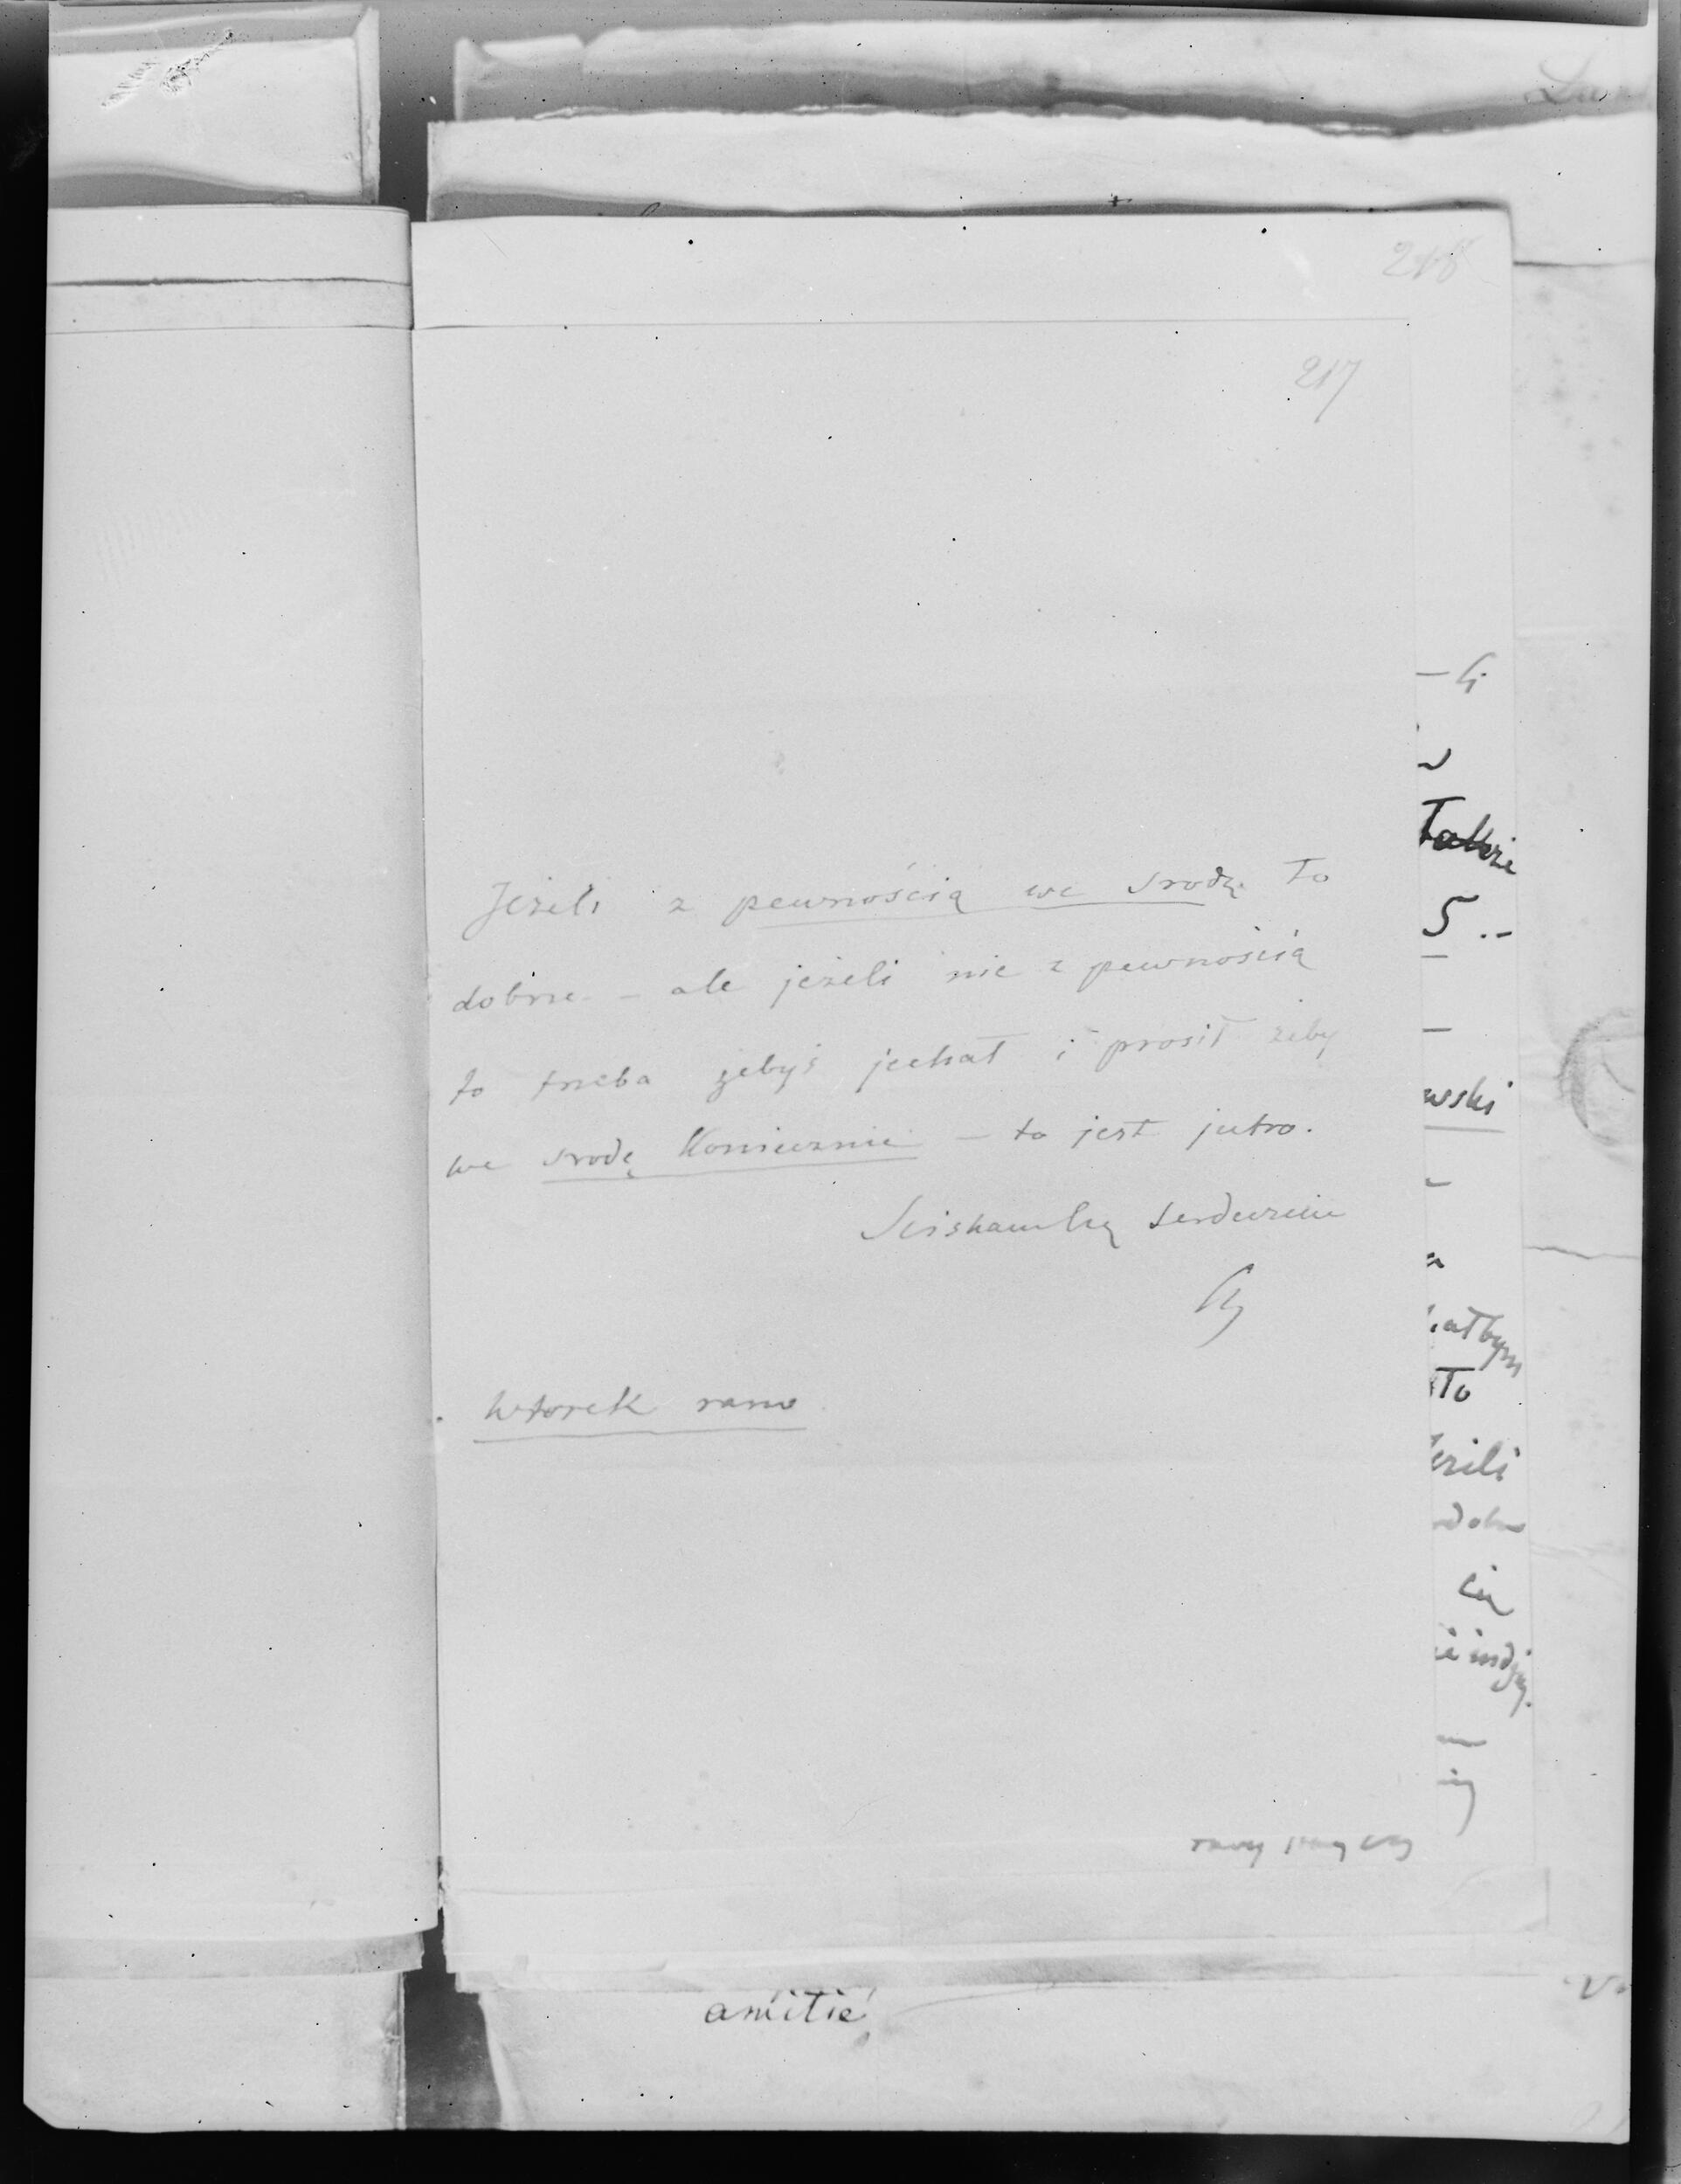 218
217
Jeżeli z pewnością we srodę to
dobrze - ale jeżeli nie z pewnością
to trzeba żebyś jechał i prosił żeby
we srodę Koniecznie - to jest jutro.
Sciskam Cię serdecznie
wtorek rano
Także
5 . -
wski
ałbym
To
eżeli
Cię
amitié